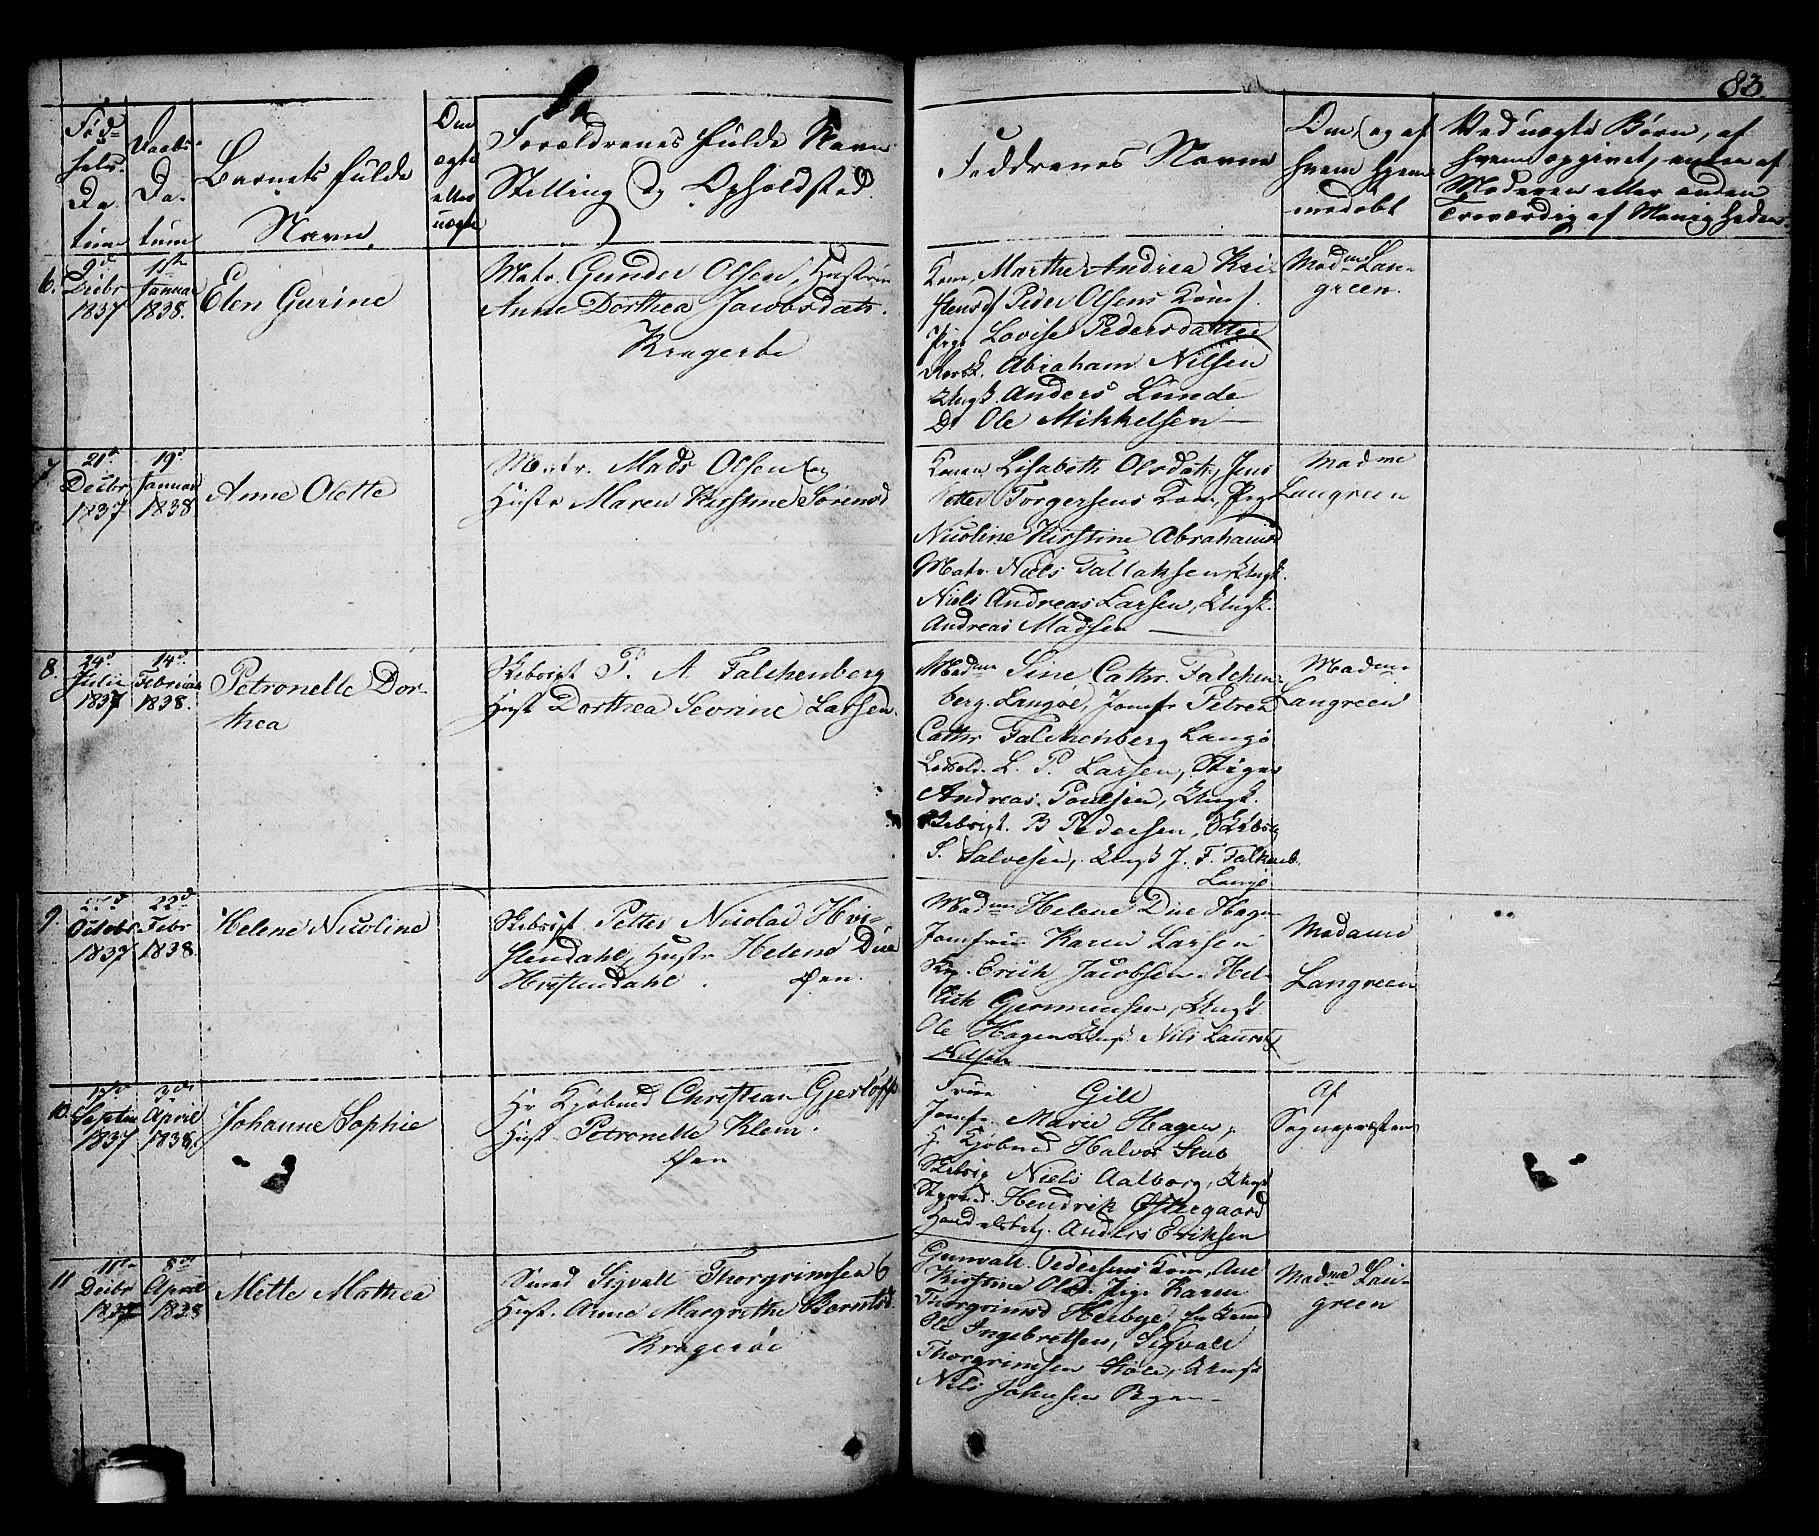 83
Fød-
sels
Da-
tum
Daabs
Da-
tum
Barnets fulde
Navn
Om
ægte
eller
uægte
Forældrenes fulde Navn
Stilling og Opholdsted
Faddrenes Navne
Om og af
hvem hjem-
medøbt
Ved uægte Børn, af
hvem opgivet, enten af
Moderen eller anden
Troværdig af Menigheden.
6.
9d
Decbr
1837
1ste
Januar
1838.
Elen Gurine
Matr. Gunder Olsen, Hustru
Anne Dorthea Jacobsdatr.
Kragerøe
Kone, Marthe Andrea Kri-
stensd Peder Olsens Kone,
Pige Lovise Pedersdatter
Abraham Nilsen
Ungk. Anders Lunde
Do Ole Mikkelsen
Madme Lan-
green.
7
21d
Decbr
1837
19d
Januar
1838
Anne Olette
Matr. Mads Olsen og
Hustr Maren Kirstine Sørensd
Konen Lisabeth Olsdatr, Jens
Petter Torgersens Kone, Pige
Nicoline Kirstine Abrahamsd
Matr. Niels Tallaksen, Ungk.
Niels Andreas Larsen, Ungk.
Andreas Madsen
Madme
Langreen
8.
24d
Julii
1837
14d
Februar
1838.
Petronelle Dor-
thea
Skibsrigt P. A Falchenberg
Hust Dorthea Sevrine Larsen.
Madme Sine Cathr. Falchen-
berg. Langøe, Jomfr Petrea
Cathr Falchenberg Langø
L. P. Larsen,
Andreas Poulsen, Ungk.
Skibsrigt. B Pedersen, Skibsr
S. Salvesen, Ungk J. F. Falkenb.
Langø
Madme
Langreen
9.
Octobr
1837
22d
Febr
1838.
Helene Nicoline
Skibsrigt Petter Nicolai Hvi-
stendahl, Hustr Helene Due
Hvistendahl. Øen.
Madme Helene Due Hagen
Jomfrue Karen Larsen
Erich Jacobsen. Hel-
lich Gjermundsen, Ungk.
Ole Hagen Ungk Nils Laurits
Nilsen
Madame
Langreen
10.
Septbr
1837
3die
April
1838.
Johanne Sophie
Hr Kjøbmd Christian Gjerløff
Hust. Petronelle Klein.
Øen
Frue Gill
Jomfr. Marie Hagen,
Hr Kjøbmd Halvor Stub
Skibsrig Niels Aalborg, Ungk
Hendrik Østergaard
Handelsbetj. Anders Eriksen
Af
Sognepræsten
11
11te
Decbr
1837
8de
April
1838
Mette Mathea
Smed Sigvall Thorgrimsen &
Hust. Anne Margrethe Berntsd.
Kragerøe
Gunvall Pedersens Kone, Ane
Kirstine Olsd. Pige Karen
Thorgrimsd Heibye, En Kvind
Ole Ingebretsen, Sigvall
Thorgrimsen Støle, Ungk
Nils Johnsen Byen
Madme Lan-
green